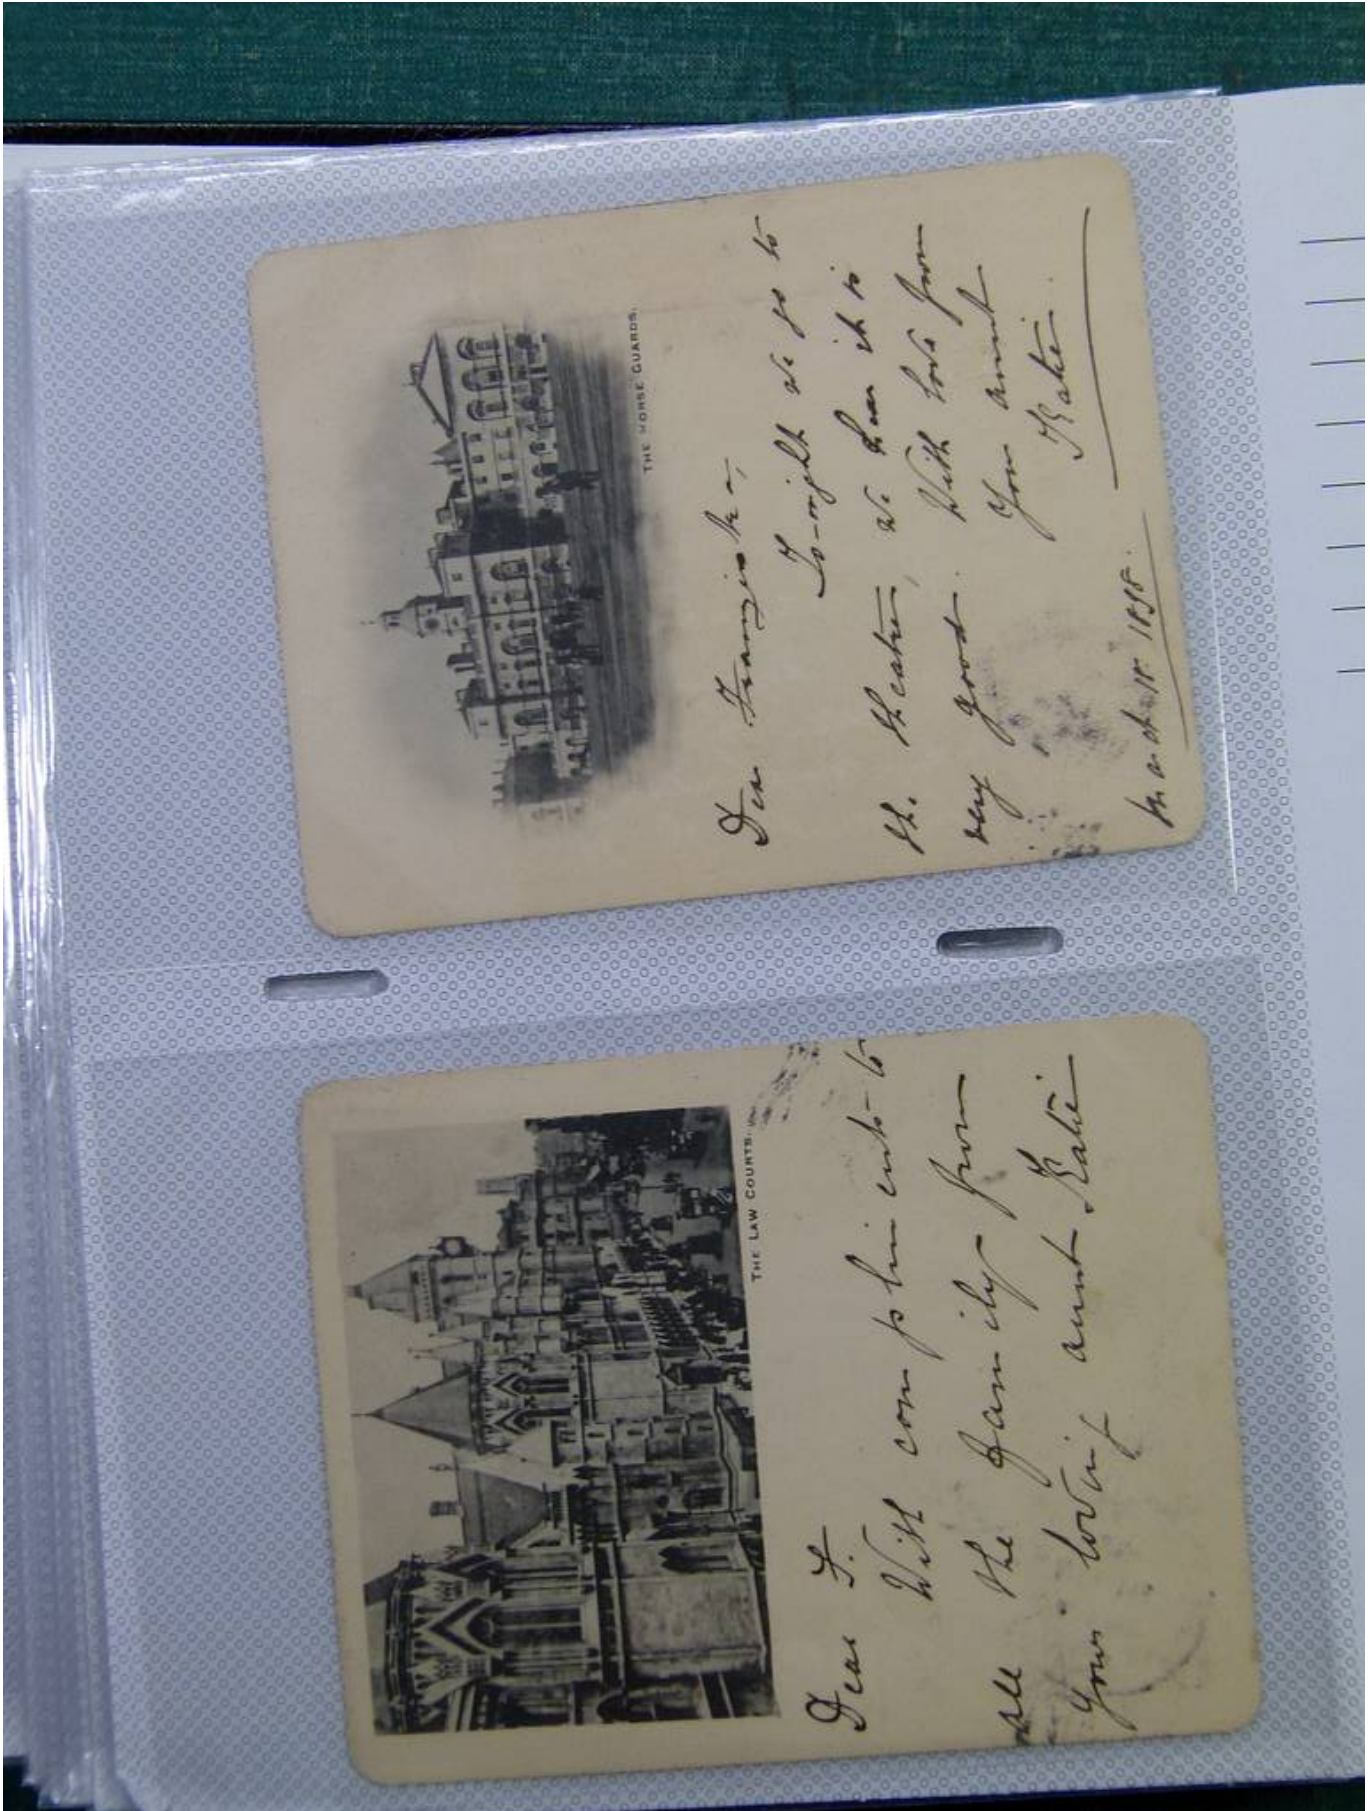 THE HORSE GUARDS.
Dear Franziska,
To-night we go to
the theatre, we hear it is
very good. With love from
Your aunt
Katie.
March 18. 1898.
THE LAW COURTS.
Dear F.
With compliments to
all the family from
Your loving aunt Katie